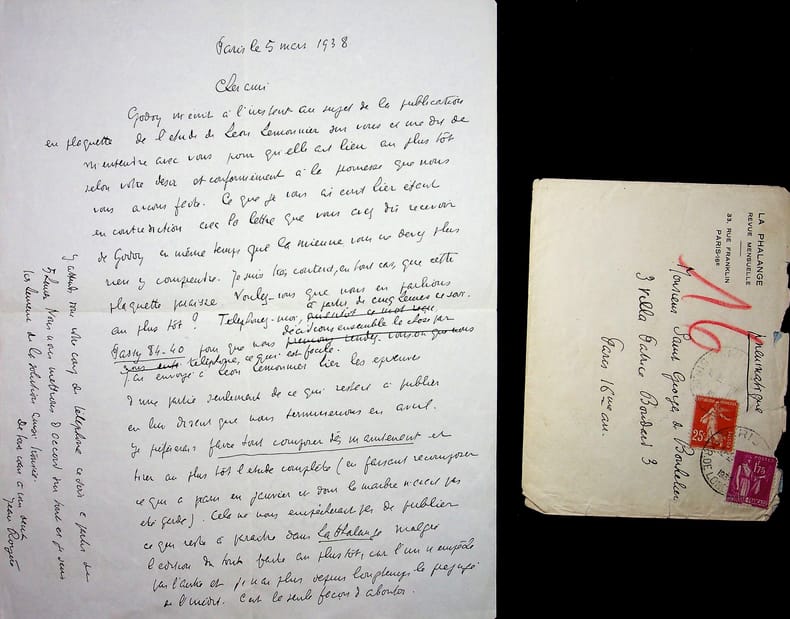 Paris le 5 mars 1938
Cher ami
Godoy m'écrit à l'instant au sujet de la publication
en plaquette de l'étude de Léon Lemonnier sur vous et me dit de
m'entendre avec vous pour qu'elle ait lieu au plus tôt
selon votre désir et conformément à la promesse que nous
vous avons faite. Ce que je vous ai écrit hier étant
en contradiction avec la lettre que vous avez dû recevoir
de Godoy en même temps que la mienne vous ne devez plus
rien y comprendre. Je suis très content, en tout cas, que cette
plaquette paraisse. Voulez-vous que nous en parlions
au plus tôt ? Téléphonez-moi, à partir de cinq heures ce soir.
Passy 84-40 pour que nous décidions ensemble la chose par
téléphone, ce qui est facile.
J'ai envoyé à Léon Lemonnier hier les épreuves
d'une partie seulement de ce qui restait à publier
en lui disant que nous terminerions en avril.
Je préfèrerais faire tout composer dès maintenant et
tirer au plus tôt l'étude complète (en faisant recomposer
ce qui a paru en janvier et dont le marbre n'avait pas
été gardé). Cela ne nous empêcherait pas de publier
ce qui reste à paraître dans La Phalange malgré
l'édition du tout faite au plus tôt, car l'un n'empêche
pas l'autre et je n'ai plus depuis longtemps le préjugé
de l'inédit. C'est la seule façon d'aboutir.
J'attends donc votre coup de téléphone ce soir à partir de
5 heures. Nous nous mettrons d'accord sur tout et je serai
heureux de la solution ainsi trouvée.
De tout cœur à vous
Jean Royère
LA PHALANGE
REVUE MENSUELLE
33, RUE FRANKLIN
PARIS-16e
Pneumatique
Monsieur Saint Georges de Bouhélier
3 Villa Patrice Boudart 3
Paris 16me arr.
16
25c
1F75